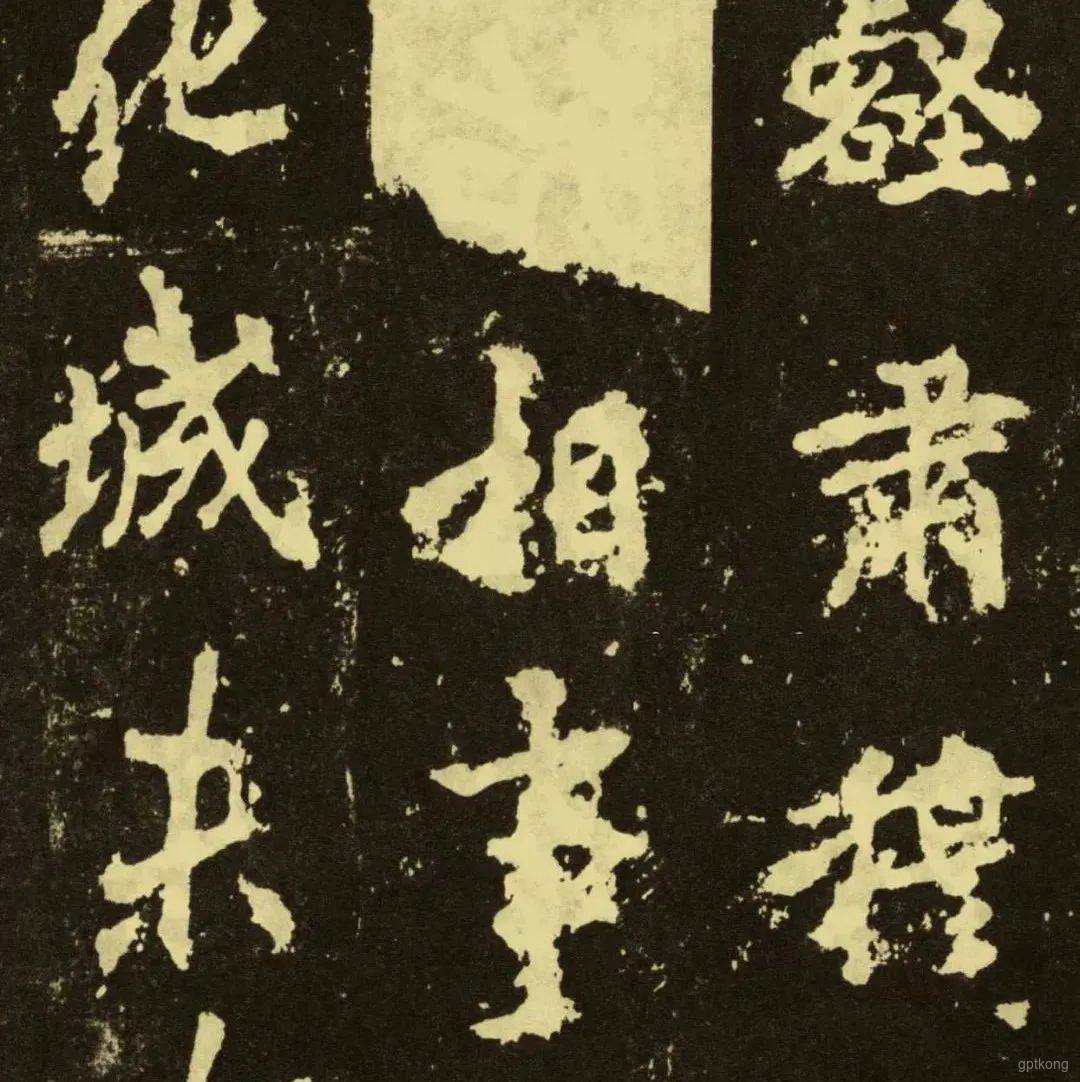 壑肅穆
相事
化城
gptkong